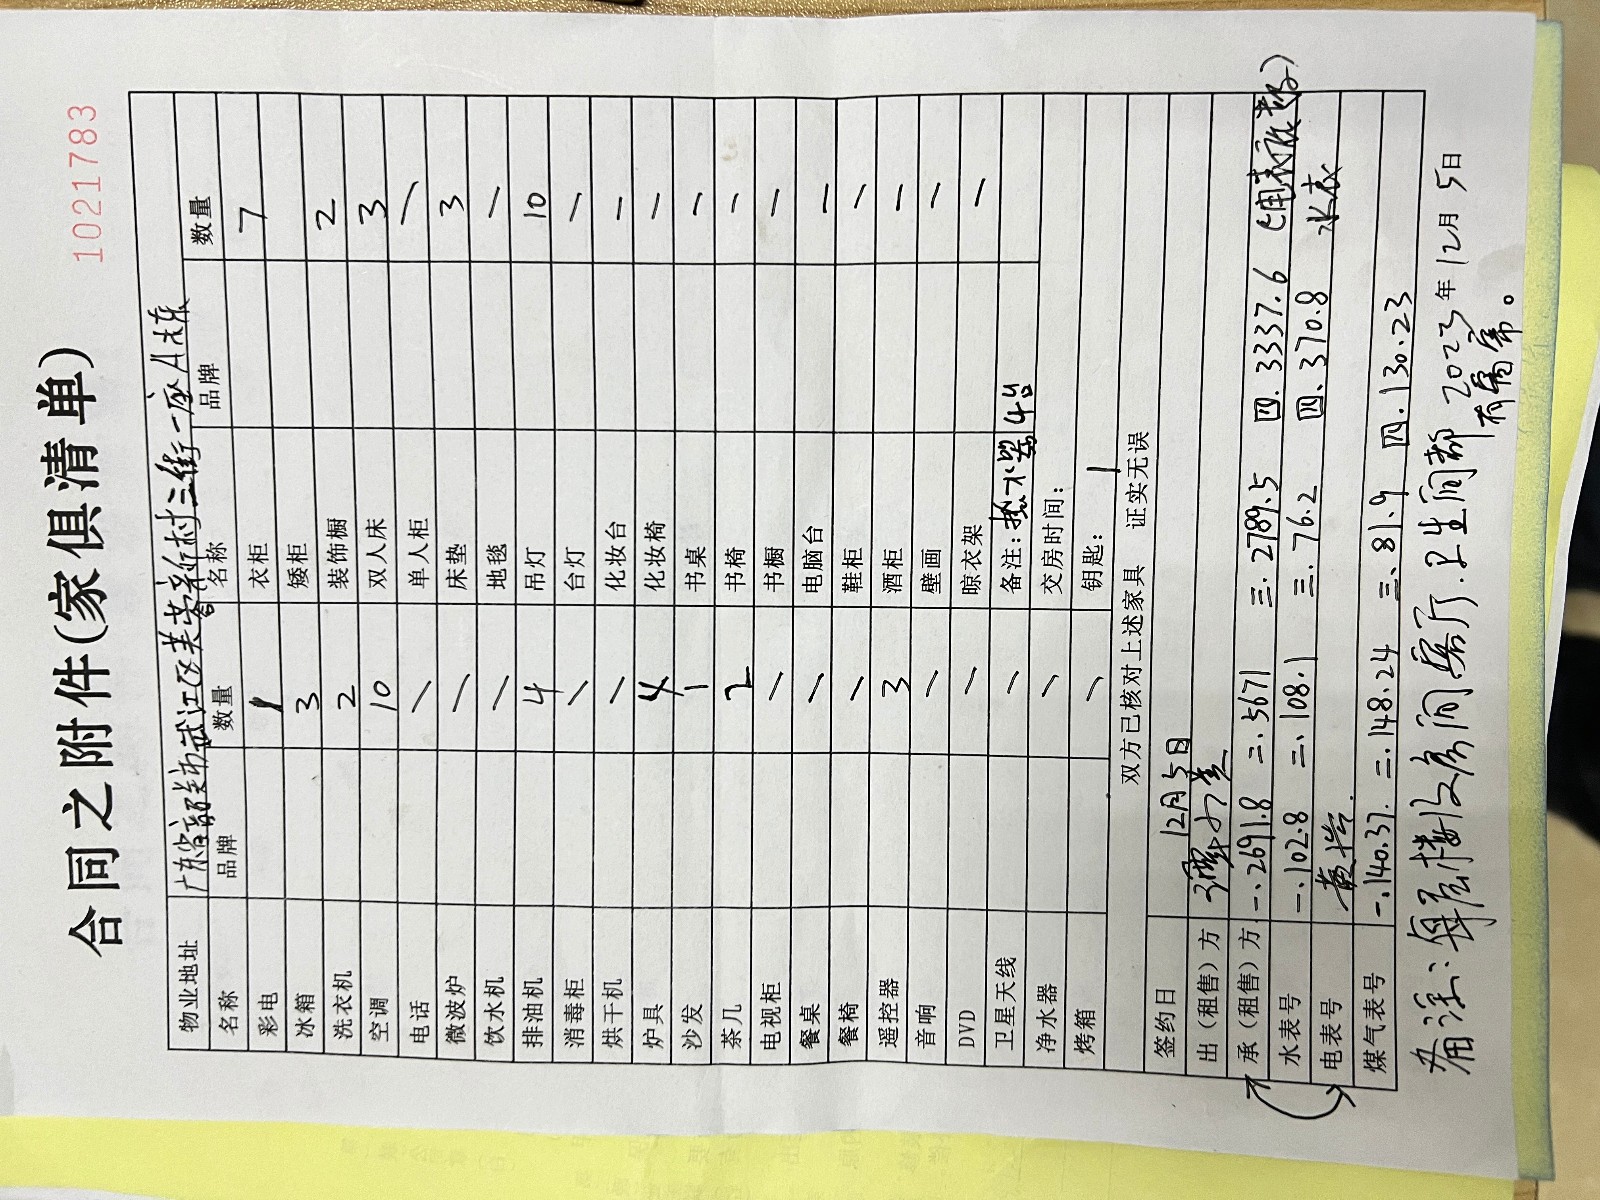 1021783
合同之附件(家俱清单)
物业地址 广东省韶关市武江区芙蓉新村三街一座A栋
名称 品牌 数量 名称 品牌 数量
彩电 1 衣柜 7
冰箱 3 矮柜
洗衣机 2 装饰橱 2
空调 10 双人床 3
电话 \ 单人柜 \
微波炉 \ 床垫 3
饮水机 \ 地毯 \
排油机 4 吊灯 10
消毒柜 \ 台灯 \
烘干机 \ 化妆台 \
炉具 4 化妆椅 \
沙发 1 书桌 \
茶几 2 书椅 \
电视柜 \ 书橱 \
餐桌 \ 电脑台 \
餐椅 \ 鞋柜 \
遥控器 3 酒柜 \
音响 \ 壁画 \
DVD \ 晾衣架 \
卫星天线 \ 备注: 热水器4台
净水器 \ 交房时间:
烤箱 \ 钥匙:
双方已核对上述家具 证实无误
签约日 12月5日
出(租售)方
承(租售)方 一.2691.8 二.5671 三.2789.5 四.3337.6 (电表底数)
水表号 一.102.8 二.108.1 三.76.2 四.370.8 水表
电表号
煤气表号 一.140.37. 二.148.24 三.81.9 四.130.23
备注:每层楼及房间客厅.卫生间都有窗帘。
2023年12月5日